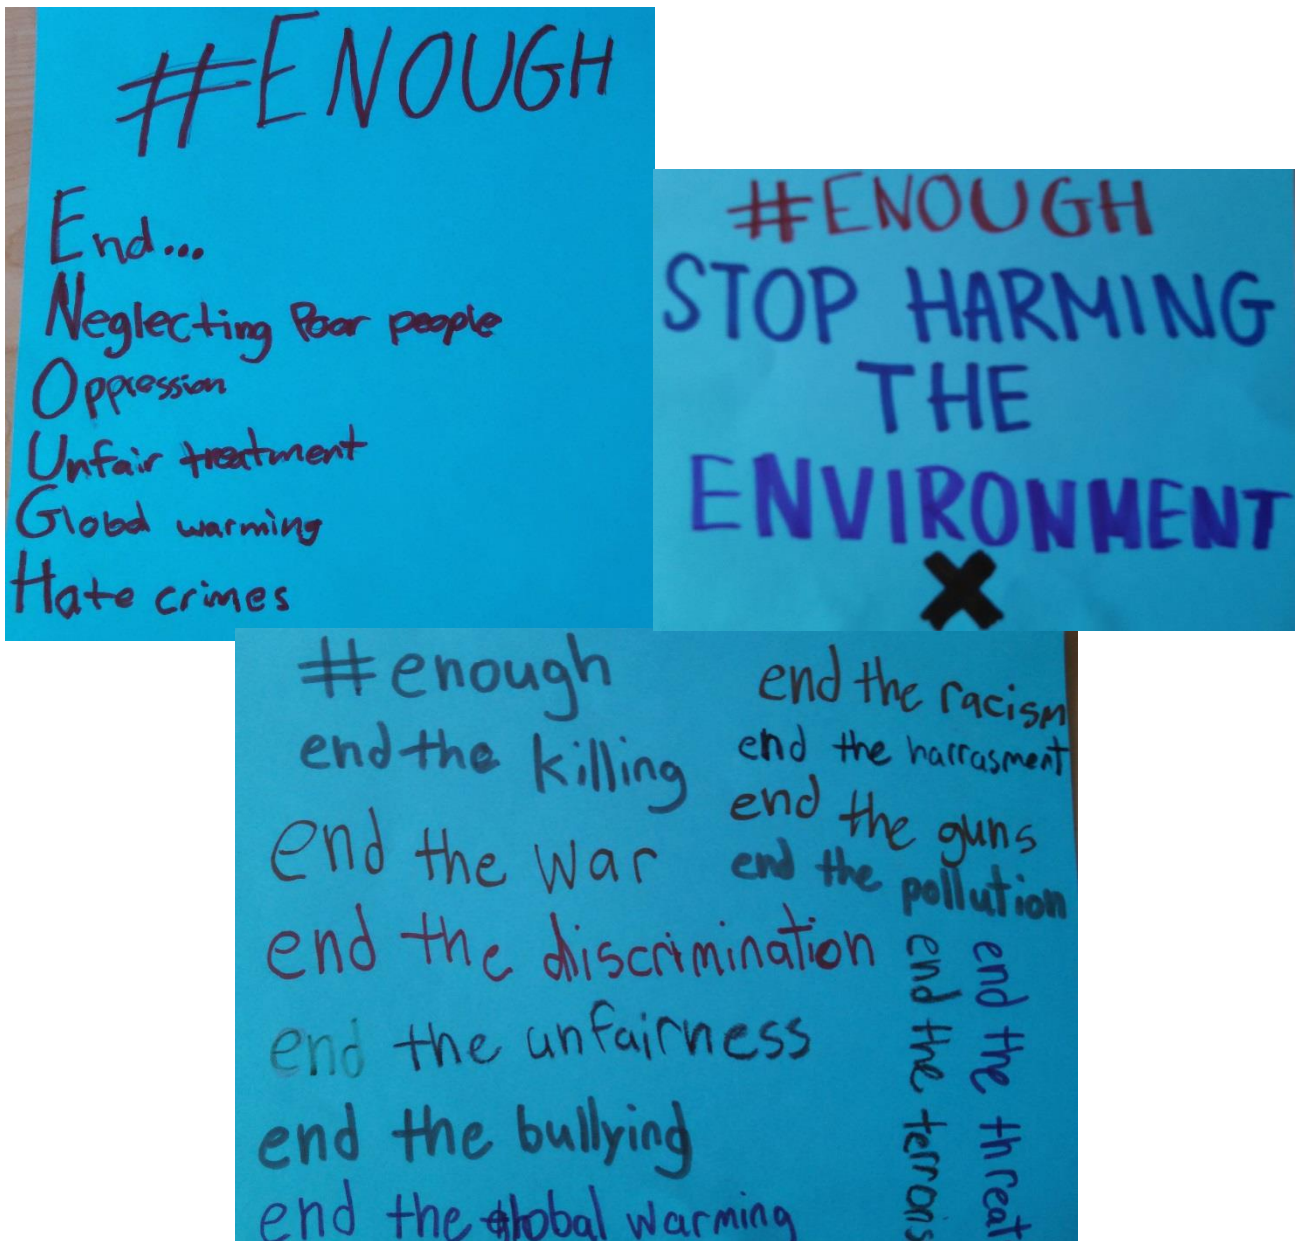 #ENOUGH
End...
Neglecting Poor people
Oppression
Unfair treatment
Global warming
Hate crimes
#ENOUGH
STOP HARMING
THE
ENVIRONMENT
#enough
end the killing
end the war
end the discrimination
end the unfairness
end the bullying
end the global warming
end the racism
end the harrasment
end the guns
end the pollution
end the threat
end the